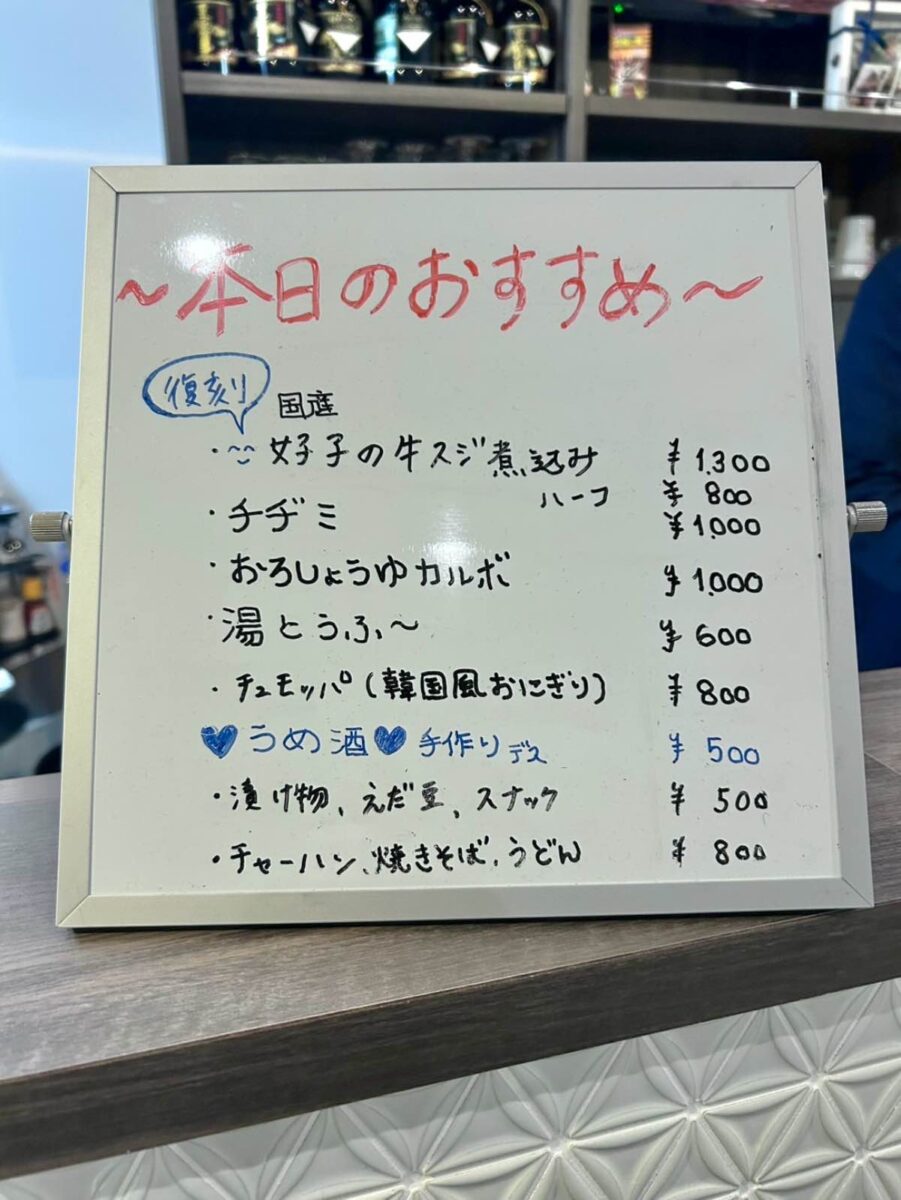 ～本日のおすすめ～
復刻
国産
・好子の牛スジ煮込み ¥1,300
ハーフ ¥800
・チヂミ ¥1,000
・おろしょうゆカルボ ¥1,000
・湯とうふ～ ¥600
・チュモッパ(韓国風おにぎり) ¥800
♥うめ酒♥手作りデス ¥500
・漬け物、えだ豆、スナック ¥500
・チャーハン、焼きそば、うどん ¥800